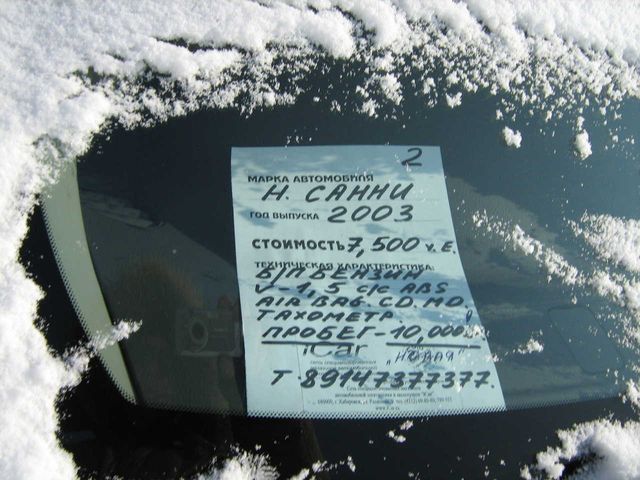 2
МАРКА АВТОМОБИЛЯ
Н. САННИ
ГОД ВЫПУСКА 2003
СТОИМОСТЬ 7,500 у.е.
ТЕХНИЧЕСКАЯ ХАРАКТЕРИСТИКА:
Б/П БЕНЗИН
V-1,5 С/С ABS
AIR BAG. CD. MD.
ТАХОМЕТР.
ПРОБЕГ-10,000
iCar "НОВАЯ"
Т 89147377377.